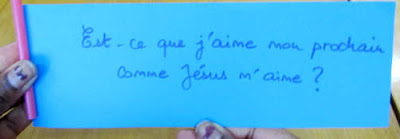 Est-ce que j'aime mon prochain
comme Jésus m'aime ?